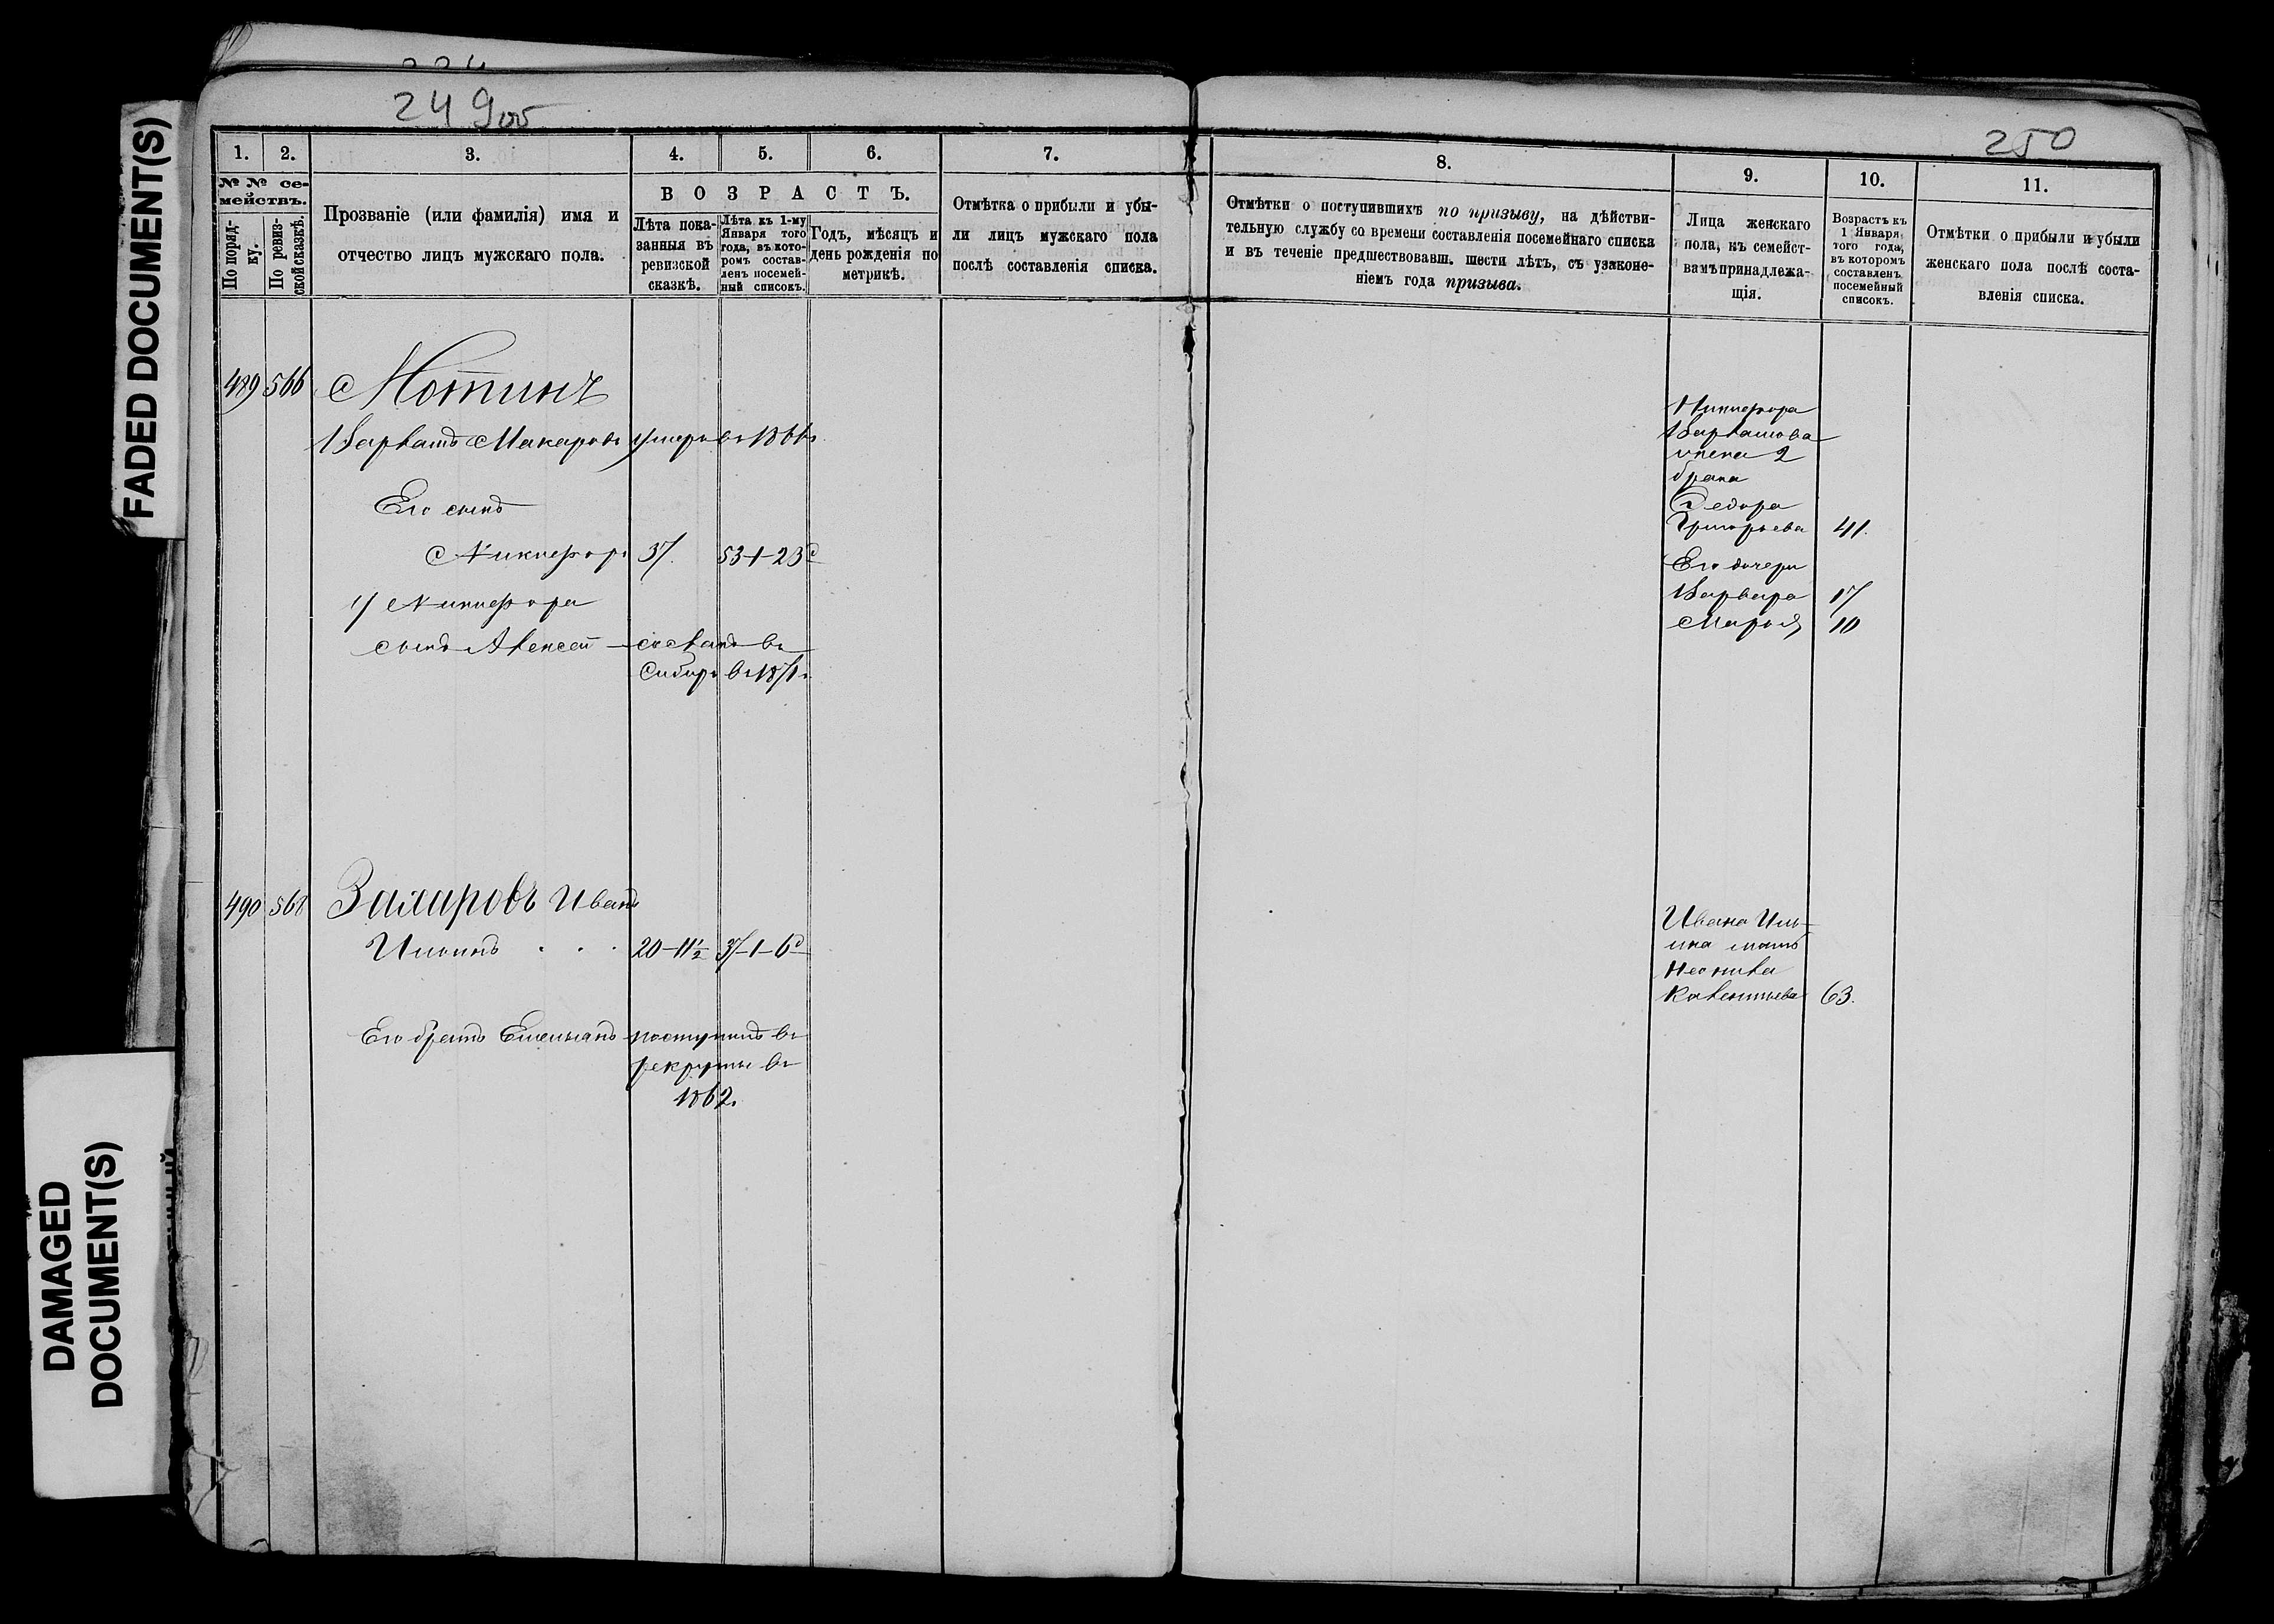 FADED DOCUMENT(S)
DAMAGED
DOCUMENT(S)
249об
250
1.
2.
3.
4.
5.
6.
7.
8.
9.
10.
11.
№ № се-
мействъ.
По поряд-
ку.
По ревиз-
ской сказкѣ.
Прозваніе (или фамилія) имя и
отчество лицъ мужскаго пола.
ВОЗРАСТЪ.
Лѣта пока-
занныя въ
ревизской
сказкѣ.
Лѣта къ 1-му
Января того
года, въ кото-
ромъ состав-
ленъ посемей-
ный списокъ.
Годъ, мѣсяцъ и
день рожденія по
метрикѣ.
Отмѣтка о прибыли и убы-
ли лицъ мужскаго пола
послѣ составленія списка.
Отмѣтки о поступившихъ по призыву, на дѣйстви-
тельную службу со времени составленія посемейнаго списка
и въ теченіе предшествовавш. шести лѣтъ, съ узаконе-
ніемъ года призыва.
Лица женскаго
пола, къ семейст-
вамъ принадлежа-
щія.
Возрастъ къ
1 Января
того года,
въ которомъ
составленъ
посемейный
списокъ.
Отмѣтки о прибыли и убыли
женскаго пола послѣ соста-
вленія списка.
489 566 Мотинъ
Макаровъ умеръ въ 1866г.
Его сынъ
Никифоръ 37. 53-1-23д
У Никифора
сынъ Алексей сосланъ въ
Сибирь въ 1871г.
Никифора
жена 2
брака
Федора
Григорьева 41.
Его дочери
Варвара 17
Марья 10
490 568 Захаровъ Иванъ
Ильинъ . . . 20-11½ 37-1-6д
Его братъ Емельянъ поступилъ въ
рекруты въ
1862.
Ивана Иль-
ина мать
Неонила
63.